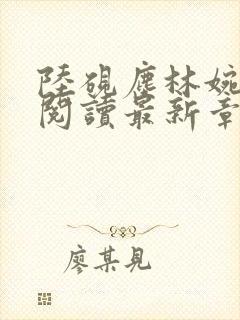 陸硯塵林婉
閱讀最新章
廖某見